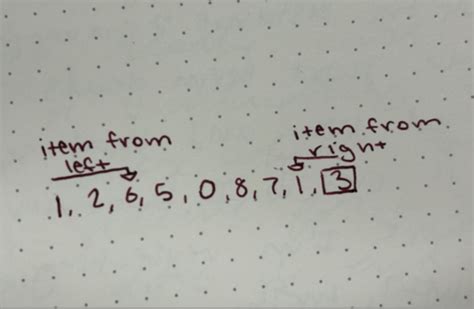 item from
left
item from
right
1, 2, 6, 5, 0, 8, 7, 1, 3